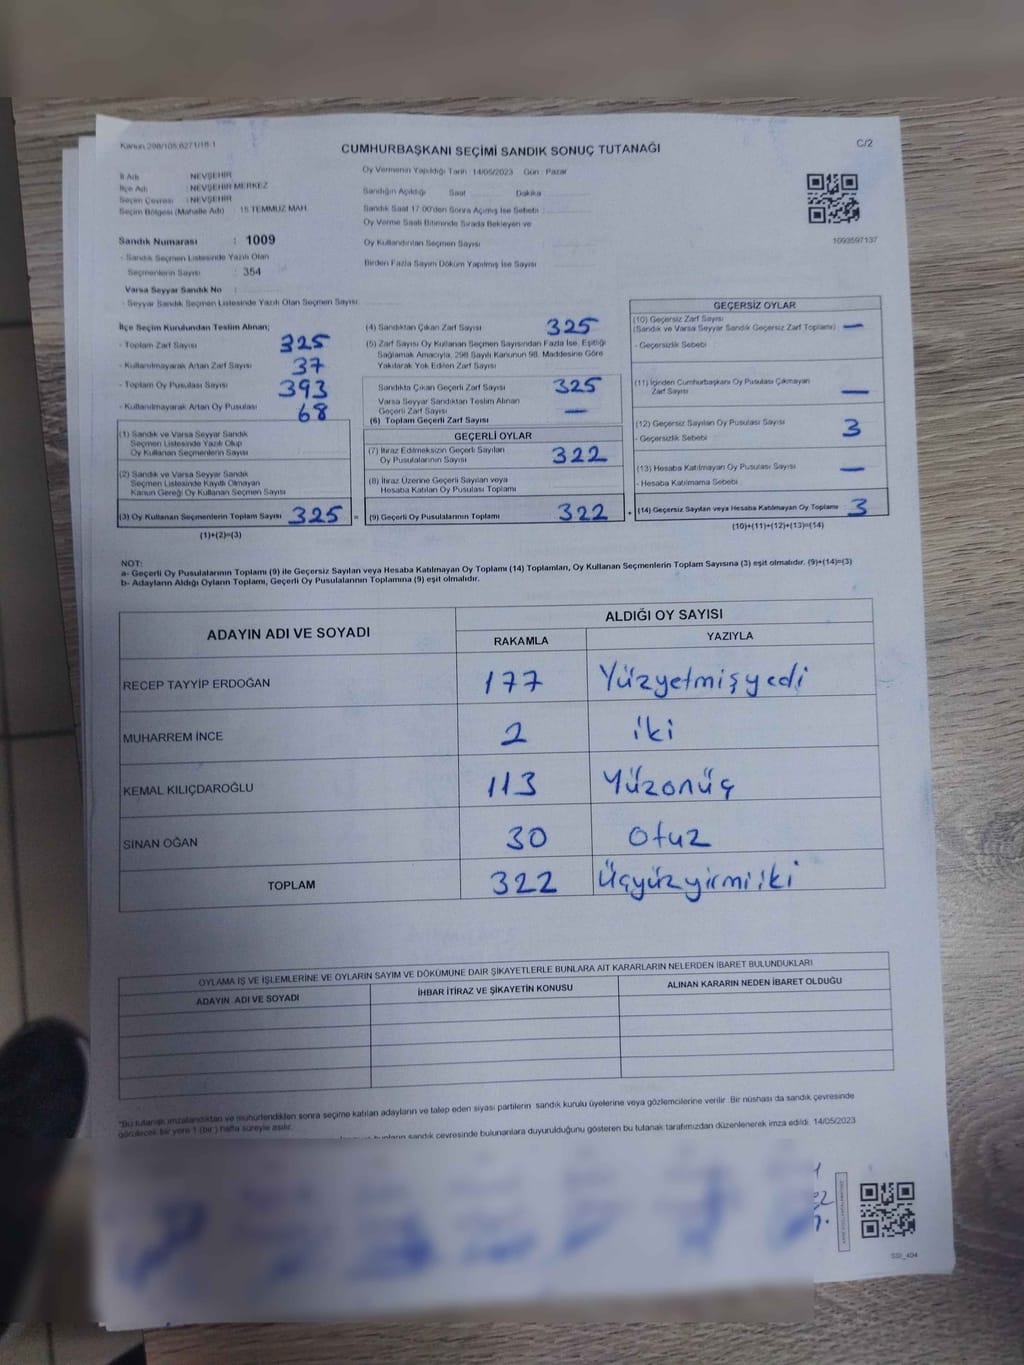 Kanun 298/105,6271/18-1
CUMHURBAŞKANI SEÇİMİ SANDIK SONUÇ TUTANAĞI
C/2
İl Adı : NEVŞEHİR
İlçe Adı : NEVŞEHİR MERKEZ
Seçim Çevresi : NEVŞEHİR
Seçim Bölgesi (Mahalle Adı) : 15 TEMMUZ MAH.
Sandık Numarası : 1009
- Sandık Seçmen Listesinde Yazılı Olan
Seçmenlerin Sayısı : 354
Varsa Seyyar Sandık No :
- Seyyar Sandık Seçmen Listesinde Yazılı Olan Seçmen Sayısı
Oy Vermenin Yapıldığı Tarih 14/05/2023 Gün : Pazar
Sandığın Açıldığı Saat Dakika
Sandık Saat 17:00'den Sonra Açımış İse Sebebi :
Oy Verme Saati Bitiminde Sırada Bekleyen ve
Oy Kullandırılan Seçmen Sayısı
Birden Fazla Sayım Döküm Yapılmış İse Sayısı
1093597137
İlçe Seçim Kurulundan Teslim Alınan;
- Toplam Zarf Sayısı 325
- Kullanılmayarak Artan Zarf Sayısı 37
- Toplam Oy Pusulası Sayısı 393
- Kullanılmayarak Artan Oy Pusulası 68
(1) Sandık ve Varsa Seyyar Sandık
Seçmen Listesinde Yazılı Olup
Oy Kullanan Seçmenlerin Sayısı
(2) Sandık ve Varsa Seyyar Sandık
Seçmen Listesinde Kayıtlı Olmayan
Kanun Gereği Oy Kullanan Seçmen Sayısı
(3) Oy Kullanan Seçmenlerin Toplam Sayısı 325 =
(1)+(2)=(3)
(4) Sandıktan Çıkan Zarf Sayısı 325
(5) Zarf Sayısı Oy Kullanan Seçmen Sayısından Fazla İse, Eşitliği
Sağlamak Amacıyla, 298 Sayılı Kanunun 98. Maddesine Göre
Yakılarak Yok Edilen Zarf Sayısı
Sandıkta Çıkan Geçerli Zarf Sayısı 325
Varsa Seyyar Sandıktan Teslim Alınan
Geçerli Zarf Sayısı —
(6) Toplam Geçerli Zarf Sayısı
GEÇERLİ OYLAR
(7) İtiraz Edilmeksizin Geçerli Sayılan
Oy Pusulalarının Sayısı 322
(8) İtiraz Üzerine Geçerli Sayılan veya
Hesaba Katılan Oy Pusulası Toplamı
(9) Geçerli Oy Pusulalarının Toplamı 322 +
GEÇERSİZ OYLAR
(10) Geçersiz Zarf Sayısı
(Sandık ve Varsa Seyyar Sandık Geçersiz Zarf Toplamı) —
- Geçersizlik Sebebi
(11) İçinden Cumhurbaşkanı Oy Pusulası Çıkmayan
Zarf Sayısı —
(12) Geçersiz Sayılan Oy Pusulası Sayısı 3
- Geçersizlik Sebebi
(13) Hesaba Katılmayan Oy Pusulası Sayısı —
- Hesaba Katılmama Sebebi
(14) Geçersiz Sayılan veya Hesaba Katılmayan Oy Toplamı 3
(10)+(11)+(12)+(13)=(14)
NOT:
a- Geçerli Oy Pusulalarının Toplamı (9) ile Geçersiz Sayılan veya Hesaba Katılmayan Oy Toplamı (14) Toplamları, Oy Kullanan Seçmenlerin Toplam Sayısına (3) eşit olmalıdır. (9)+(14)=(3)
b- Adayların Aldığı Oyların Toplamı, Geçerli Oy Pusulalarının Toplamına (9) eşit olmalıdır.
ADAYIN ADI VE SOYADI
ALDIĞI OY SAYISI
RAKAMLA YAZIYLA
RECEP TAYYİP ERDOĞAN 177 Yüzyetmişyedi
MUHARREM İNCE 2 iki
KEMAL KILIÇDAROĞLU 113 Yüzonüç
SİNAN OĞAN 30 Otuz
TOPLAM 322 Üçyüzyirmiiki
OYLAMA İŞ VE İŞLEMLERİNE VE OYLARIN SAYIM VE DÖKÜMÜNE DAİR ŞİKAYETLERLE BUNLARA AİT KARARLARIN NELERDEN İBARET BULUNDUKLARI
ADAYIN ADI VE SOYADI İHBAR İTİRAZ VE ŞİKAYETİN KONUSU ALINAN KARARIN NEDEN İBARET OLDUĞU
"Bu tutanak imzalandıktan ve mühürlendikten sonra seçime katılan adayların ve talep eden siyasi partilerin sandık kurulu üyelerine veya gözlemcilerine verilir. Bir nüshası da sandık çevresinde
görülecek bir yere 1 (bir) hafta süreyle asılır.
sandık çevresinde bulunanlara duyurulduğunu gösteren bu tutanak tarafımızdan düzenlenerek imza edildi. 14/05/2023
SSI_404